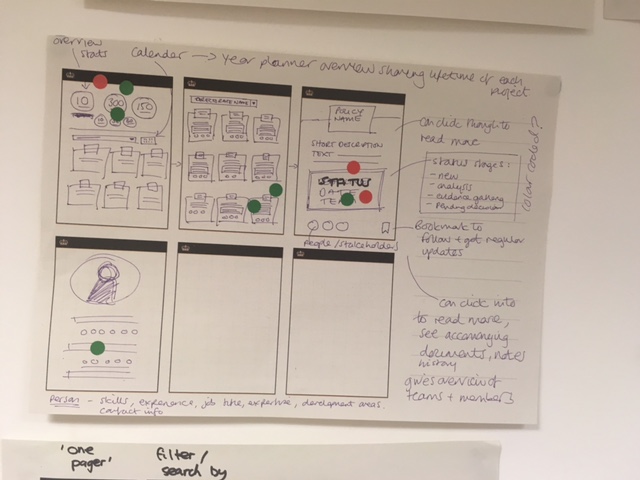 overview
stats
calendar → year planner overview sharing lifetime of each
project
10
300
150
POLICY
NAME
SHORT DESCRIPTION
TEXT
STATUS
DATE
TEAM
can click through to
read more
status stages:
- new
- analysis
- evidence gathering
- pending decision
colour coded?
people/stakeholders
Bookmark to
follow + get regular
updates
can click into
to read more,
see accompanying
documents, notes
history
gives overview of
teams + members
person - skills, experience, job title, expertise, development areas.
contact info
'one
pager'
filter/
search by